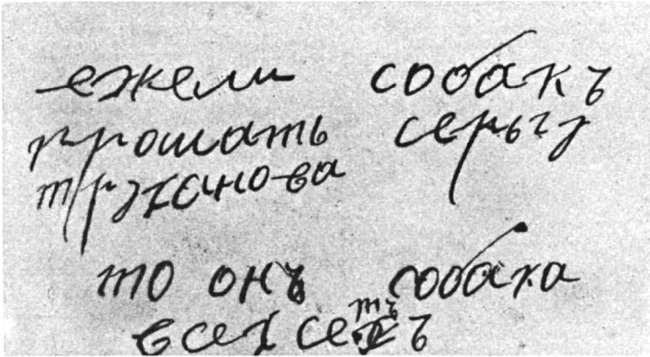 ежели собакъ
прошать серьгу
труханова
то онъ собака
всех